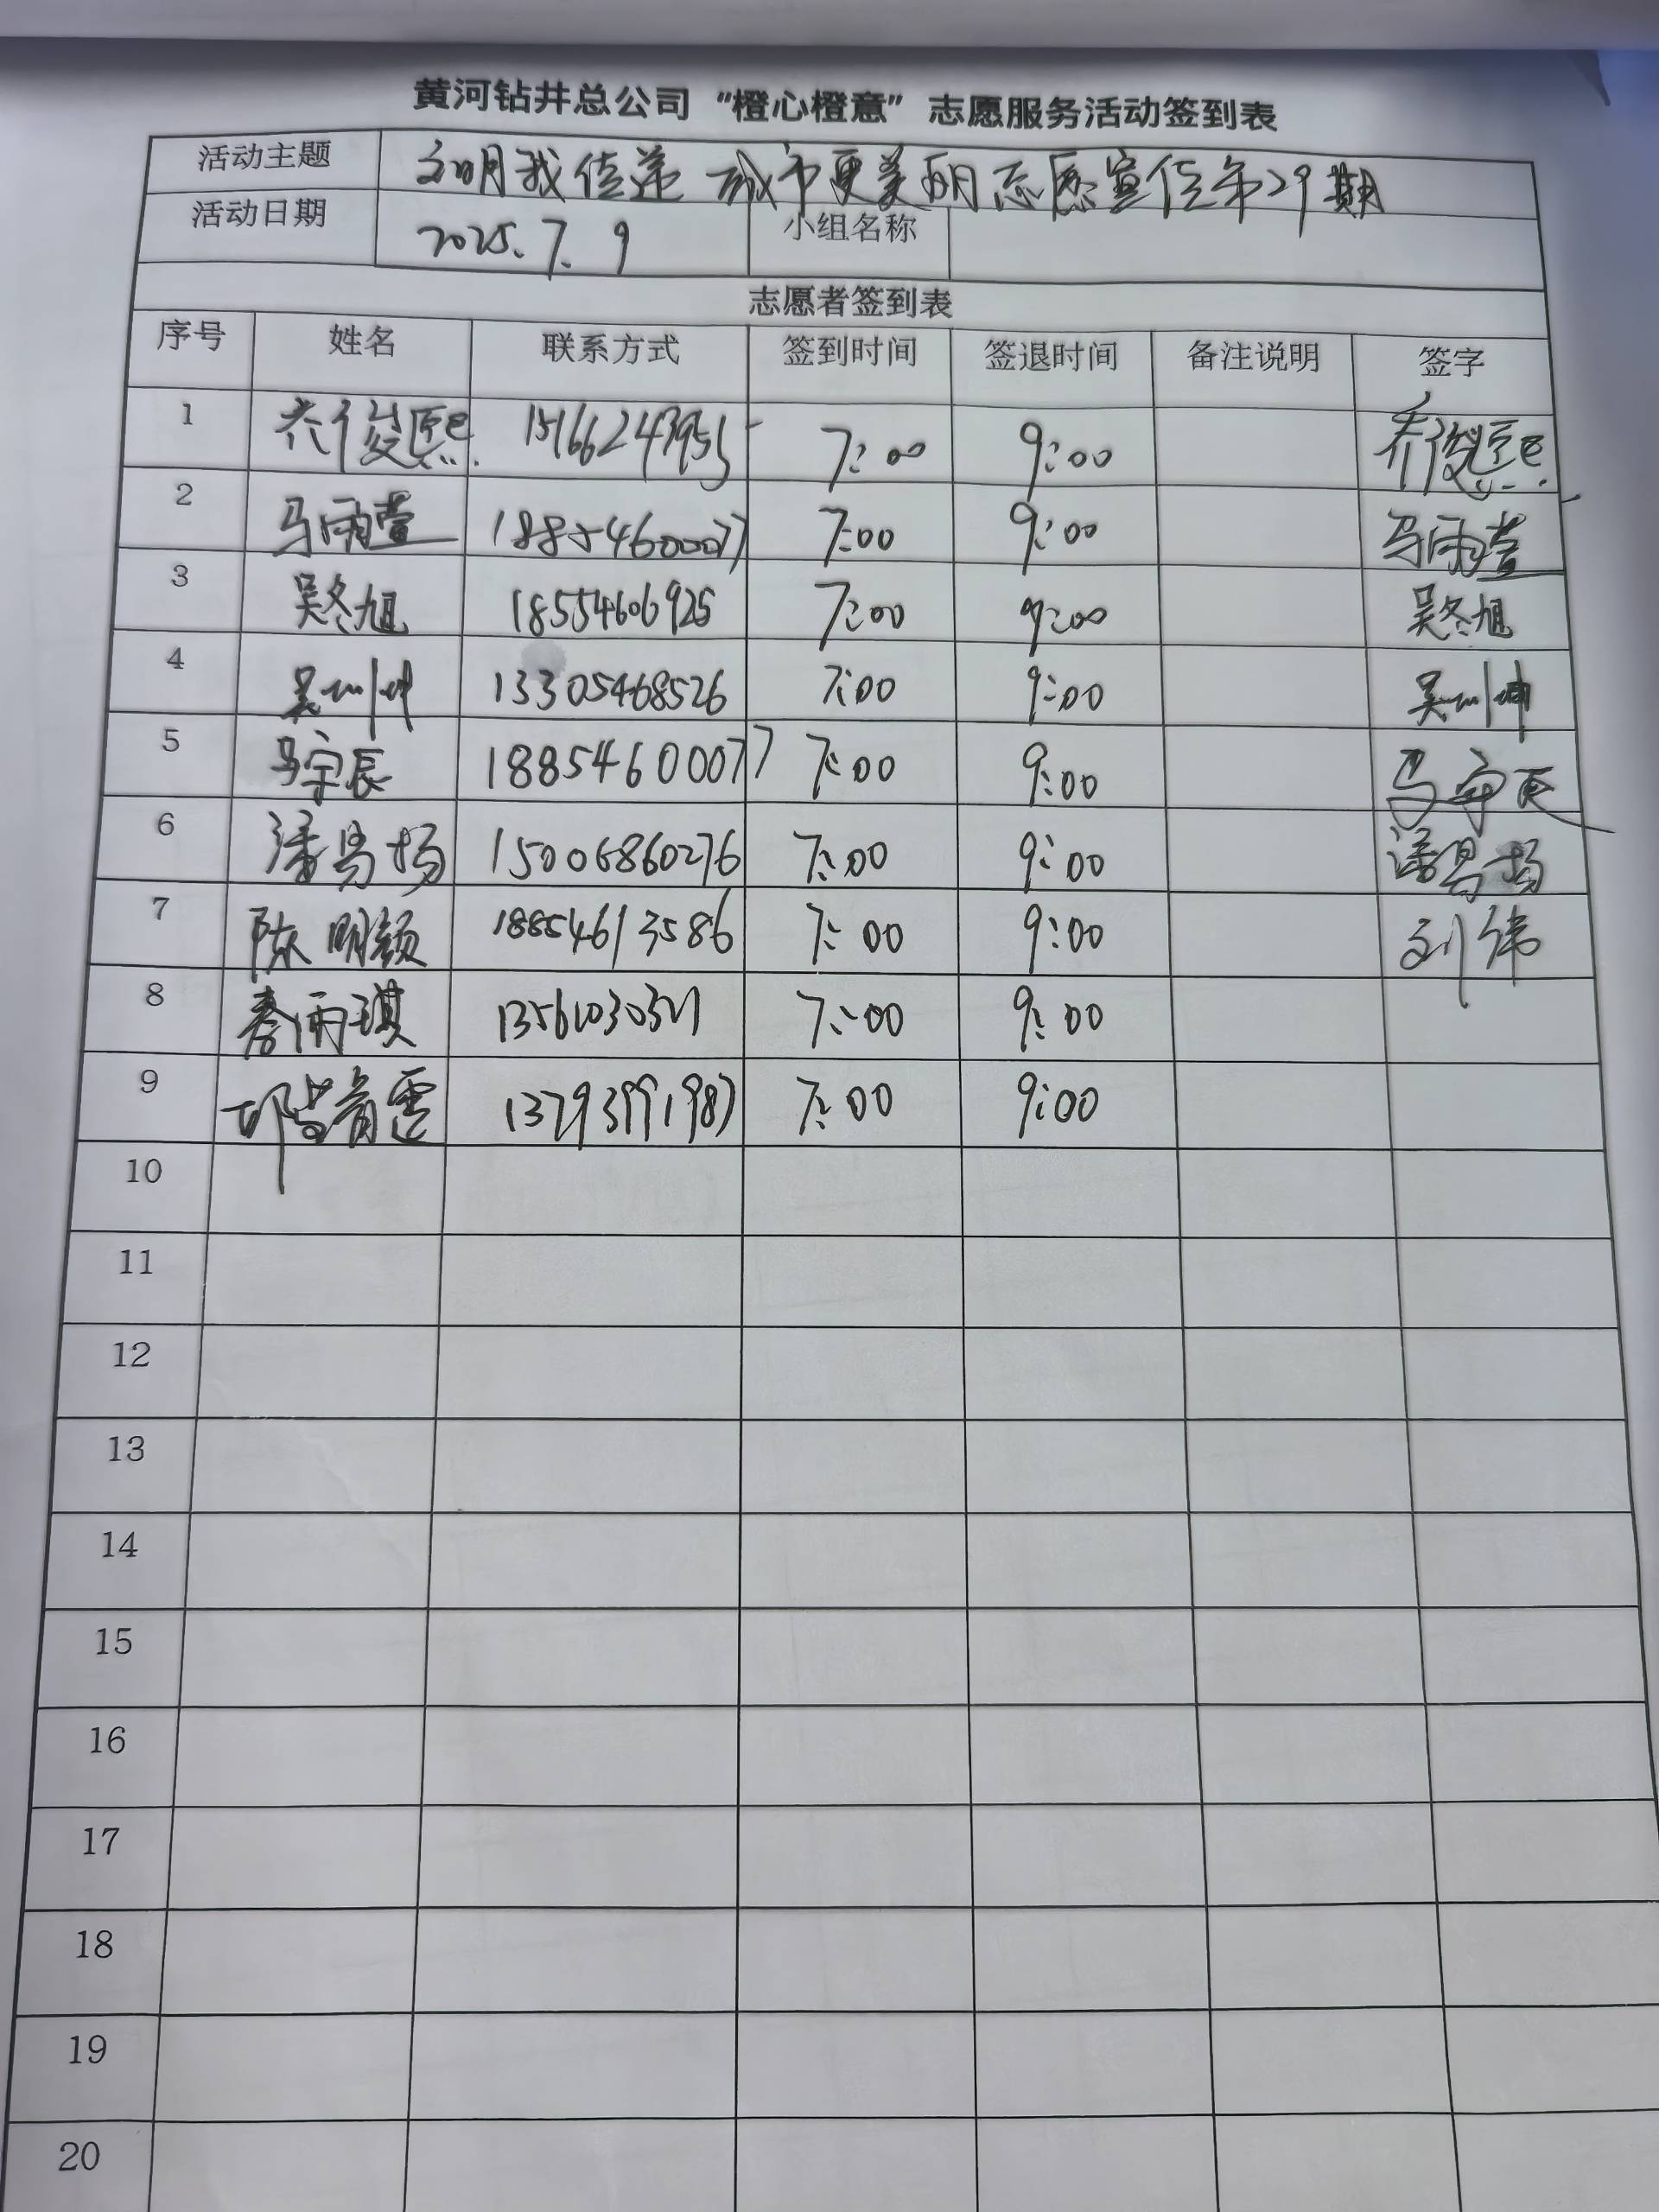 黄河钻井总公司“橙心橙意”志愿服务活动签到表
活动主题 文明我传递 城市更美丽志愿宣传第29期
活动日期 2025.7.9 小组名称
志愿者签到表
序号 姓名 联系方式 签到时间 签退时间 备注说明 签字
1 乔俊熙 7:00 9:00 乔俊熙
2 马雨萱 18854600077 7:00 9:00 马雨萱
3 吴冬旭 18554606925 7:00 9:00 吴冬旭
4 吴 坤 13305468526 7:00 9:00 吴 坤
5 马宇辰 18854600077 7:00 9:00 马宇辰
6 潘昜扬 15006860276 7:00 9:00 潘昜扬
7 陈明颖 18854613586 7:00 9:00 刘伟
8 秦雨琪 7:00 9:00
9 13793991987 7:00 9:00
10
11
12
13
14
15
16
17
18
19
20